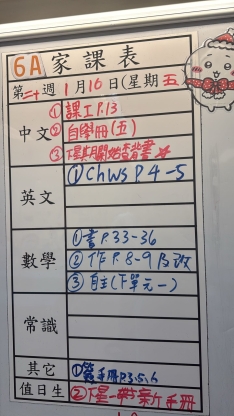 6A 家課表
第二十週 1月16日(星期五)
中文
①課工P.13
②自學冊(五)
③下星期開始查背書
英文
①Chws P4-5
數學
①書P.33-36
②作P.8-9及改
③自主(下單元一)
常識
其它
①簽手冊P3,5,6
值日生
②下星一帶新手冊